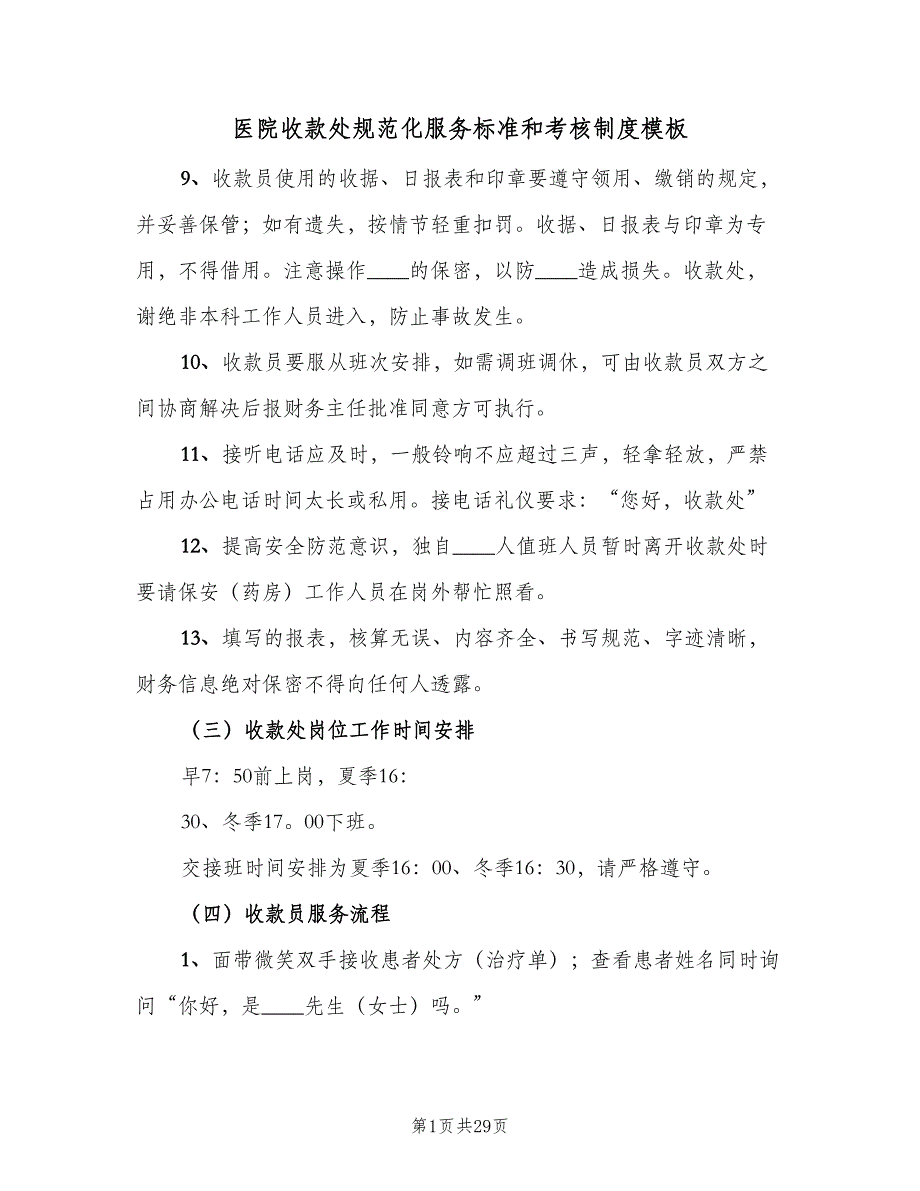 医院收款处规范化服务标准和考核制度模板
9、收款员使用的收据、日报表和印章要遵守领用、缴销的规定，
并妥善保管；如有遗失，按情节轻重扣罚。收据、日报表与印章为专
用，不得借用。注意操作____的保密，以防____造成损失。收款处，
谢绝非本科工作人员进入，防止事故发生。
10、收款员要服从班次安排，如需调班调休，可由收款员双方之
间协商解决后报财务主任批准同意方可执行。
11、接听电话应及时，一般铃响不应超过三声，轻拿轻放，严禁
占用办公电话时间太长或私用。接电话礼仪要求：“您好，收款处”
12、提高安全防范意识，独自____人值班人员暂时离开收款处时
要请保安（药房）工作人员在岗外帮忙照看。
13、填写的报表，核算无误、内容齐全、书写规范、字迹清晰，
财务信息绝对保密不得向任何人透露。
（三）收款处岗位工作时间安排
早7：50前上岗，夏季16：
30、冬季17。00下班。
交接班时间安排为夏季16：00、冬季16：30，请严格遵守。
（四）收款员服务流程
1、面带微笑双手接收患者处方（治疗单）；查看患者姓名同时询
问“你好，是____先生（女士）吗。”
第1页共29页